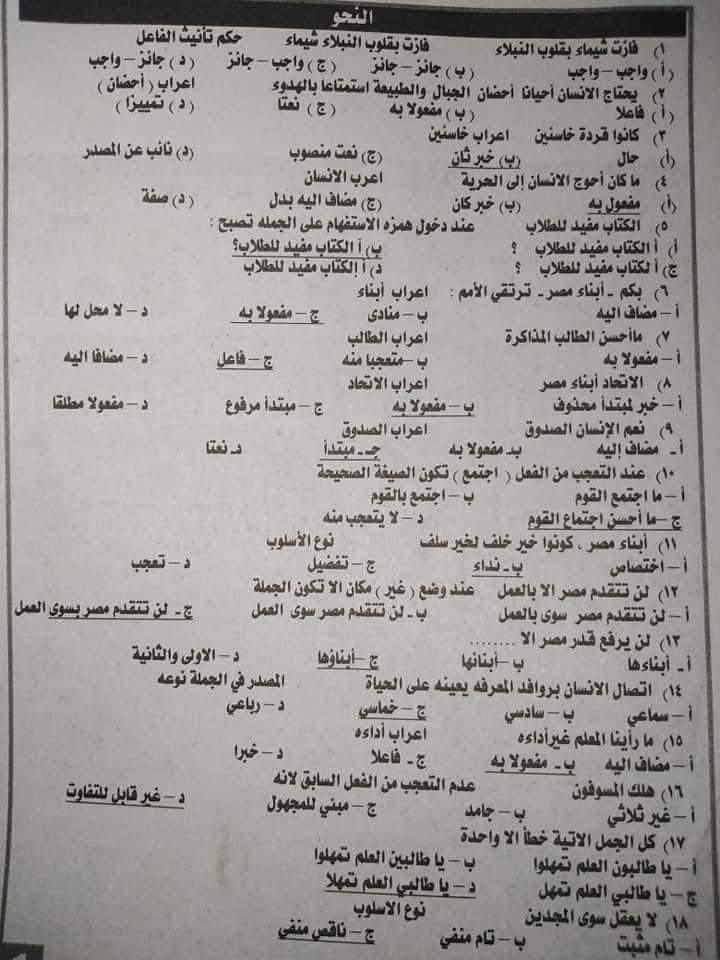 النحو
١) فازت شيماء بقلوب النبلاء فازت بقلوب النبلاء شيماء حكم تأنيث الفاعل
(أ) واجب – واجب (ب) جائز – جائز (ج) واجب – جائز (د) جائز – واجب
٢) يحتاج الانسان أحيانا أحضان الجبال والطبيعة استمتاعا بالهدوء اعراب (أحضان)
(أ) فاعلا (ب) مفعولا به (ج) نعتا (د) تمييزا
٣) كانوا قردة خاسئين اعراب خاسئين
(أ) حال (ب) خبر ثان (ج) نعت منصوب (د) نائب عن المصدر
٤) ما كان أحوج الانسان إلى الحرية اعرب الانسان
(أ) مفعول به (ب) خبر كان (ج) مضاف اليه بدل (د) صفة
٥) الكتاب مفيد للطلاب عند دخول همزه الاستفهام على الجمله تصبح :
أ) أ الكتاب مفيد للطلاب ؟ ب) آ الكتاب مفيد للطلاب؟
ج) أ لكتاب مفيد للطلاب ؟ د) أ إلكتاب مفيد للطلاب
٦) بكم ـ أبناء مصر ـ ترتقي الأمم : اعراب أبناء
أ – مضاف اليه ب – منادى ج – مفعولا به د – لا محل لها
٧) ماأحسن الطالب المذاكرة اعراب الطالب
أ – مفعولا به ب – متعجبا منه ج – فاعل د – مضافا اليه
٨) الاتحاد أبناء مصر اعراب الاتحاد
أ – خبر لمبتدأ محذوف ب – مفعولا به ج – مبتدأ مرفوع د – مفعولا مطلقا
٩) نعم الإنسان الصدوق اعراب الصدوق
أ ـ مضاف إليه ب ـ مفعولا به جـ ـ مبتدأ د ـ نعتا
١٠) عند التعجب من الفعل ( اجتمع ) تكون الصيغة الصحيحة
أ – ما اجتمع القوم ب – اجتمع بالقوم
ج – ما أحسن اجتماع القوم د – لا يتعجب منه
١١) أبناء مصر ، كونوا خير خلف لخير سلف نوع الأسلوب
أ – اختصاص ب ـ نداء ج – تفضيل د – تعجب
١٢) لن تتقدم مصر الا بالعمل عند وضع ( غير ) مكان الا تكون الجملة
أ – لن تتقدم مصر سوى بالعمل ب ـ لن تتقدم مصر سوى العمل ج ـ لن تتقدم مصر بسوى العمل
١٣) لن يرفع قدر مصر الا ........
أ ـ أبناءها ب – أبنائها ج – أبناؤها د – الاولى والثانية
١٤) اتصال الانسان بروافد المعرفه يعينه على الحياة المصدر في الجملة نوعه
أ – سماعي ب – سداسي ج – خماسي د – رباعي
١٥) ما رأينا المعلم غيرأداءه اعراب أداءه
أ – مضاف اليه ب ـ مفعولا به ج ـ فاعلا د – خبرا
١٦) هلك المسوفون عدم التعجب من الفعل السابق لانه
أ – غير ثلاثي ب – جامد ج – مبني للمجهول د – غير قابل للتفاوت
١٧) كل الجمل الاتية خطأ الا واحدة
أ – يا طالبون العلم تمهلوا ب – يا طالبين العلم تمهلوا
ج – يا طالبي العلم تمهل د – يا طالبي العلم تمهلا
١٨) لا يعقل سوى المجدين نوع الاسلوب
أ – تام مثبت ب – تام منفي ج – ناقص منفي